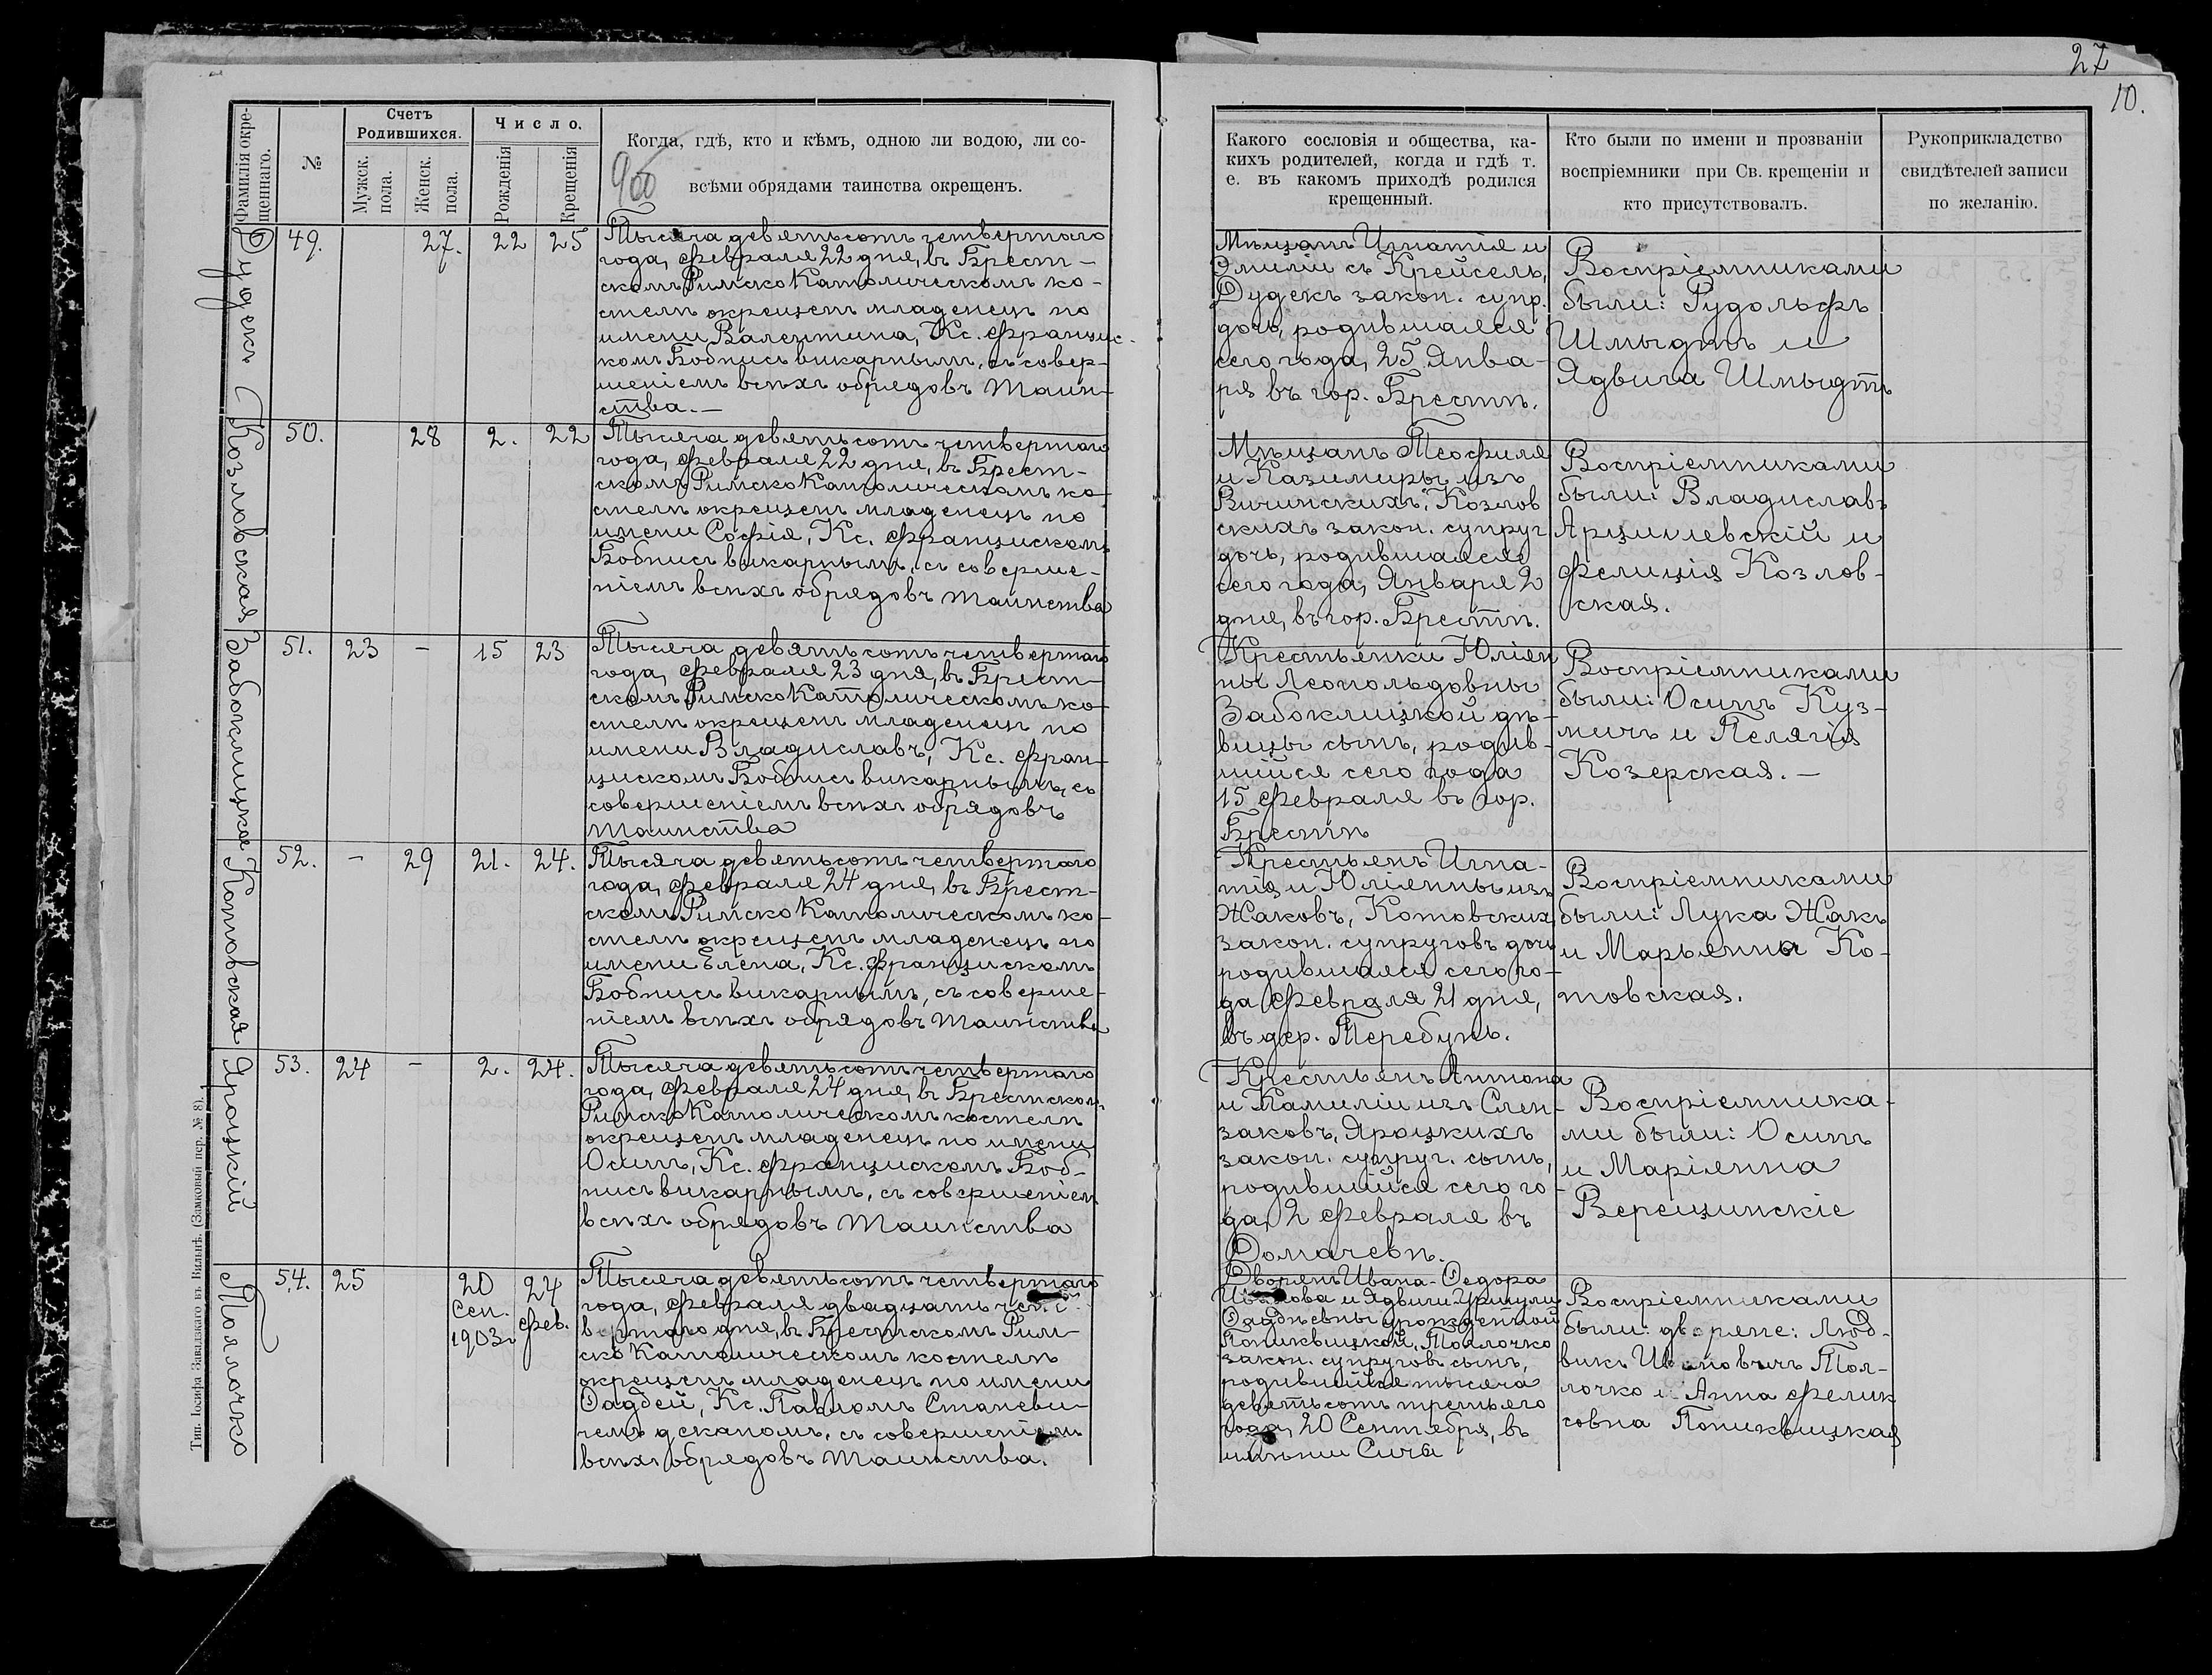 27
10.
Фамилія окре-
щеннаго.
№
Счетъ
Родившихся.
Мужск.
пола.
Женск.
пола.
Число.
Рожденія
Крещенія
Когда, гдѣ, кто и кѣмъ, одною ли водою, ли со-
всѣми обрядами таинства окрещенъ.
Какого сословія и общества, ка-
кихъ родителей, когда и гдѣ т.
е. въ какомъ приходѣ родился
крещенный.
Кто были по имени и прозваніи
воспріемники при Св. крещеніи и
кто присутствовалъ.
Рукоприкладство
свидѣтелей записи
по желанію.
Дудекъ
49.
27.
22
25
Тысяча девятьсотъ четвертаго
года, Февраля 22 дня, въ Брест-
скомъ Римско Католическомъ ко-
стелѣ окрещенъ младенецъ по
имени Валентина, Кс. Францис-
комъ Бобнисъ викарнымъ, съ совер-
шеніемъ всѣхъ обрядовъ Таин-
ства.—
Мѣщанъ Игнатія и
Эмиліи съ Крейсель,
Дудекъ закон. супр.
дочь, родившаяся
сего года, 25 Янва-
ря въ гор. Брестѣ.
Воспріемниками
были: Рудольфъ
Шмыдтъ и
Ядвига Шмыдтъ
Козловская
50.
28
2.
22
Тысяча девятьсотъ четвертаго
года, Февраля 22 дня, въ Брест-
скомъ Римско Католическомъ ко-
стелѣ окрещенъ младенецъ по
имени Софія, Кс. Францискомъ
Бобнисъ викарнымъ, съ соверше-
ніемъ всѣхъ обрядовъ таинства
Мѣщанъ Теофиля
и Казимиры изъ
Вичинскихъ, Козлов
скихъ закон. супруг
дочь, родившаяся
сего года, Января 2
дня, въ гор. Брестѣ.
Воспріемниками
были: Владиславъ
Арцишевскій и
Фелиція Козлов-
ская.
Забоклицкой
51.
23
-
15
23
Тысяча девятьсотъ четвертаго
года, Февраля 23 дня, въ Брест-
скомъ Римско Католическомъ ко-
стелѣ окрещенъ младенецъ по
имени Владиславъ, Кс. Фран-
цискомъ Бобнисъ викарнымъ, съ
совершеніемъ всѣхъ обрядовъ
Таинства
Крестьянки Юліян
ны Леопольдовны
Забоклицкой дѣ-
вицы сынъ, родив-
шійся сего года
15 Февраля въ гор.
Брестѣ
Воспріемниками
были: Осипъ Куз-
мичъ и Пелягія
Козерская.—
Котовская
52.
-
29
21.
24.
Тысяча девятьсотъ четвертаго
года, Февраля 24 дня, въ Брест-
скомъ Римско Католическомъ ко-
стелѣ окрещенъ младенецъ по
имени Елена, Кс. Францискомъ
Бобнисъ викарнымъ, съ соверше-
ніемъ всѣхъ обрядовъ Таинства
Крестьянъ Игна-
тія и Юліянны изъ
Жаковъ, Котовскихъ
закон. супруговъ дочь
родившаяся сего го-
да Февраля 21 дня,
въ дер. Теребунь.
Воспріемниками
были: Лука Жакъ
и Марьянна Ко-
товская.
Яроцкій
53.
24
-
2.
24.
Тысяча девятьсотъ четвертаго
года, Февраля 24 дня, въ Брестском
Римско Католическомъ костелѣ
окрещенъ младенецъ по имени
Осипъ, Кс. Францискомъ Боб-
нисъ викарнымъ, съ совершеніем
всѣхъ обрядовъ Таинства
Крестьянъ Антона
и Камиліи изъ Слен-
заковъ, Яроцкихъ
закон. супруг. сынъ,
родившійся сего го-
да, 2 Февраля въ
Домачевѣ.
Воспріемника-
ми были: Осипъ
и Маріянна
Верещинскіе
Толлочко
54.
25
20
Сен.
1903г
24
Фев.
Тысяча девятьсотъ четвертаго
года, Февраля двадцать чет-
вертаго дня, въ Брестскомъ Рим-
ско Католическомъ костелѣ
окрещенъ младенецъ по имени
Фаддей, Кс. Павломъ Станеви-
чемъ деканомъ, съ совершеніемъ
всѣхъ обрядовъ Таинства.
Дворянъ Ивана-Федора
Иванова и Ядвиги Уршули
Фаддѣевны урожденной
Пониквицкой, Толлочко
закон. супруговъ сынъ,
родившійся тысяча
девятьсотъ третьяго
года, 20 Сентября, въ
имѣніи Сичи
Воспріемниками
были: дворяне: Люд-
викъ Ивановичъ Тол-
лочко и Анна Фелик
совна Пониквицкая
Тип. Іосифа Завадзкаго въ Вильнѣ. (Замковый пер. № 8).